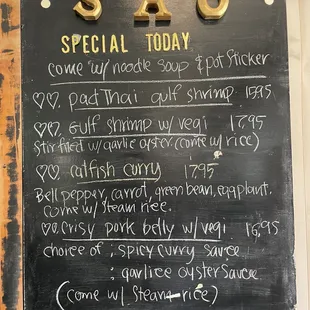 SAO
SPECIAL TODAY
come w/ noodle soup & pot sticker
♡♡ pad Thai gulf shrimp 15.95
♡♡ Gulf shrimp w/ vegi 17.95
Stir fried w/ garlic oyster (come w/ rice)
♡♡ catfish curry 17.95
Bell pepper, carrot, green bean, eggplant.
come w/ steam rice.
♡♡ crisy pork belly w/ vegi 16.95
choice of ; spicy curry sauce
; garlice oyster sauce
(come w/ steam rice)